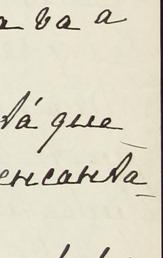 va a
tá que
encanta-